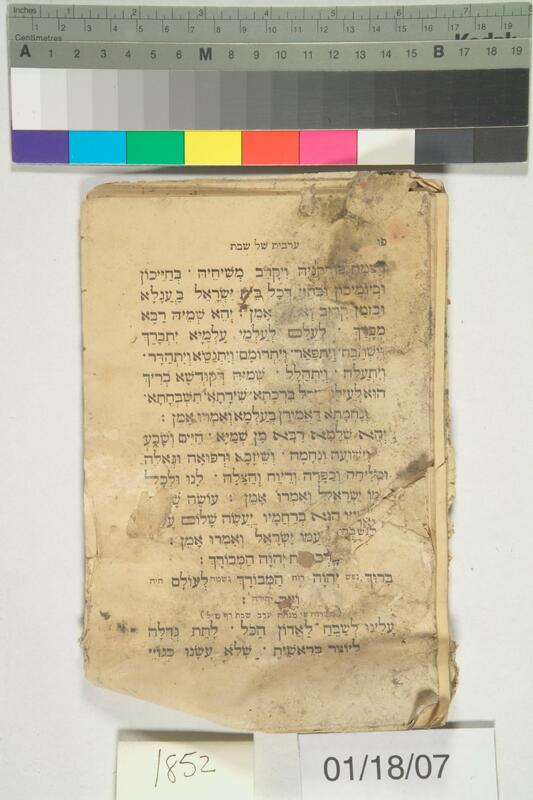 Inches 1 2 3 4 5 6 7 8
1 2 3 4 5 6 7 8 9 10 11 12 13 14 15 16 17 18 19
Centimetres Kodak
A 1 2 3 4 5 6 M 8 9 10 11 12 13 14 15 B 17 18 19
פו ערבית של שבת
וְיַצְמַח פּוּרְקָנֵיהּ וִיקָרֵב מְשִׁיחֵיהּ · בְּחַיֵּיכוֹן
וּבְיוֹמֵיכוֹן וּבְחַיֵּי דְּכָל בֵּית יִשְׂרָאֵל בַּעֲגָלָא
וּבִזְמַן קָרִיב אָמֵן : יְהֵא שְׁמֵיהּ רַבָּא
מְבָרַךְ לְעָלַם לְעָלְמֵי עָלְמַיָּא יִתְבָּרַךְ
וְיִשְׁתַּבַּח וְיִתְפָּאַר וְיִתְרוֹמַם וְיִתְנַשֵּׂא וְיִתְהַדָּר ·
וְיִתְעַלֶּה · וְיִתְהַלָּל · שְׁמֵיהּ דְּקוּדְשָׁא בְּרִיךְ
הוּא לְעֵילָּא בִּרְכָתָא שִׁירָתָא תִּשְׁבְּחָתָא ·
וְנֶחָמָתָא דַּאֲמִירָן בְּעָלְמָא וְאִמְרוּ אָמֵן :
יְהֵא שְׁלָמָא רַבָּא מִן שְׁמַיָּא · חַיִּים וְשָׂבָע
וִישׁוּעָה וְנֶחָמָה · וְשֵׁיזָבָא וּרְפוּאָה וּגְאֻלָּה
וּסְלִיחָה וְכַפָּרָה וְרֵיוַח וְהַצָּלָה · לָנוּ וּלְכָל
יִשְׂרָאֵל וְאִמְרוּ אָמֵן : עוֹשֶׂה
הוּא בְּרַחֲמָיו יַעֲשֶׂה שָׁלוֹם
עַמּוֹ יִשְׂרָאֵל וְאִמְרוּ אָמֵן :
יְהֹוָה הַמְבוֹרָךְ :
בָּרוּךְ נפש יְהֹוָה רוח הַמְבוֹרָךְ נשמה לְעוֹלָם חיה
וָעֶד יחידה :
ערב שבת דף
עָלֵינוּ לְשַׁבֵּחַ לַאֲדוֹן הַכֹּל · לָתֵת גְּדֻלָּה
לְיוֹצֵר בְּרֵאשִׁית · שֶׁלֹּא עָשָׂנוּ כְּגוֹיֵי
1852
01/18/07